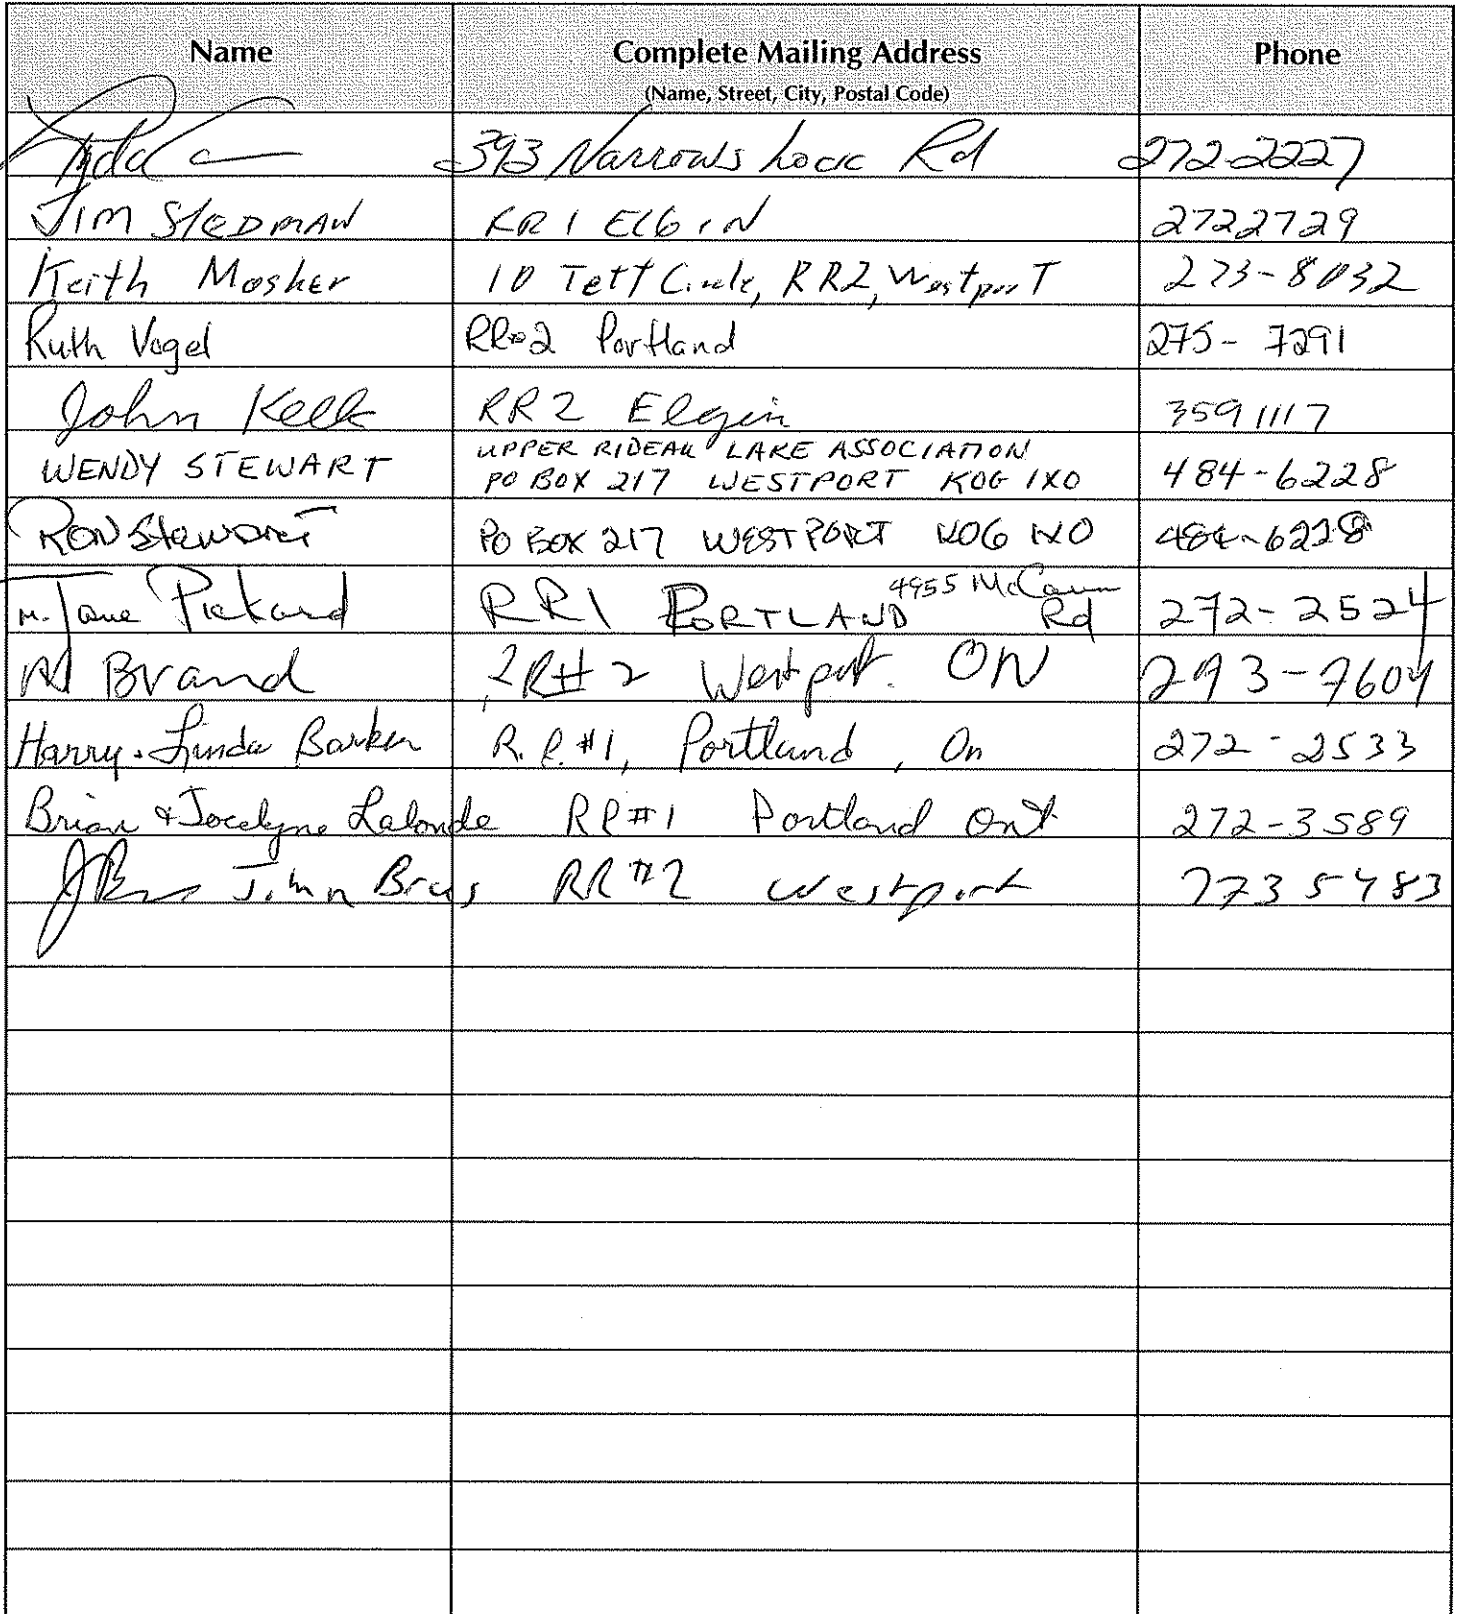 Name Complete Mailing Address Phone
(Name, Street, City, Postal Code)
393 Narrows Lock Rd 272-2227
JIM STEDMAN RR1 ELGIN 2722729
Keith Mosher 10 Tett Circle, RR2, Westport 273-8032
Ruth Vogel RR#2 Portland 275-7291
John Kelk RR2 Elgin 359 1117
UPPER RIDEAU LAKE ASSOCIATION
WENDY STEWART PO BOX 217 WESTPORT K0G 1X0 484-6228
RON Stewart PO BOX 217 WESTPORT K0G 1X0 484-6228
M. Jane Pickard RR1 PORTLAND 4955 McCann Rd 272-2524
Brand RR#2 Westport. ON 293-7604
Harry & Linda Barker R.R.#1, Portland, On 272-2533
Brian & Jocelyne Lalonde RR#1 Portland Ont 272-3589
John RR#2 Westport